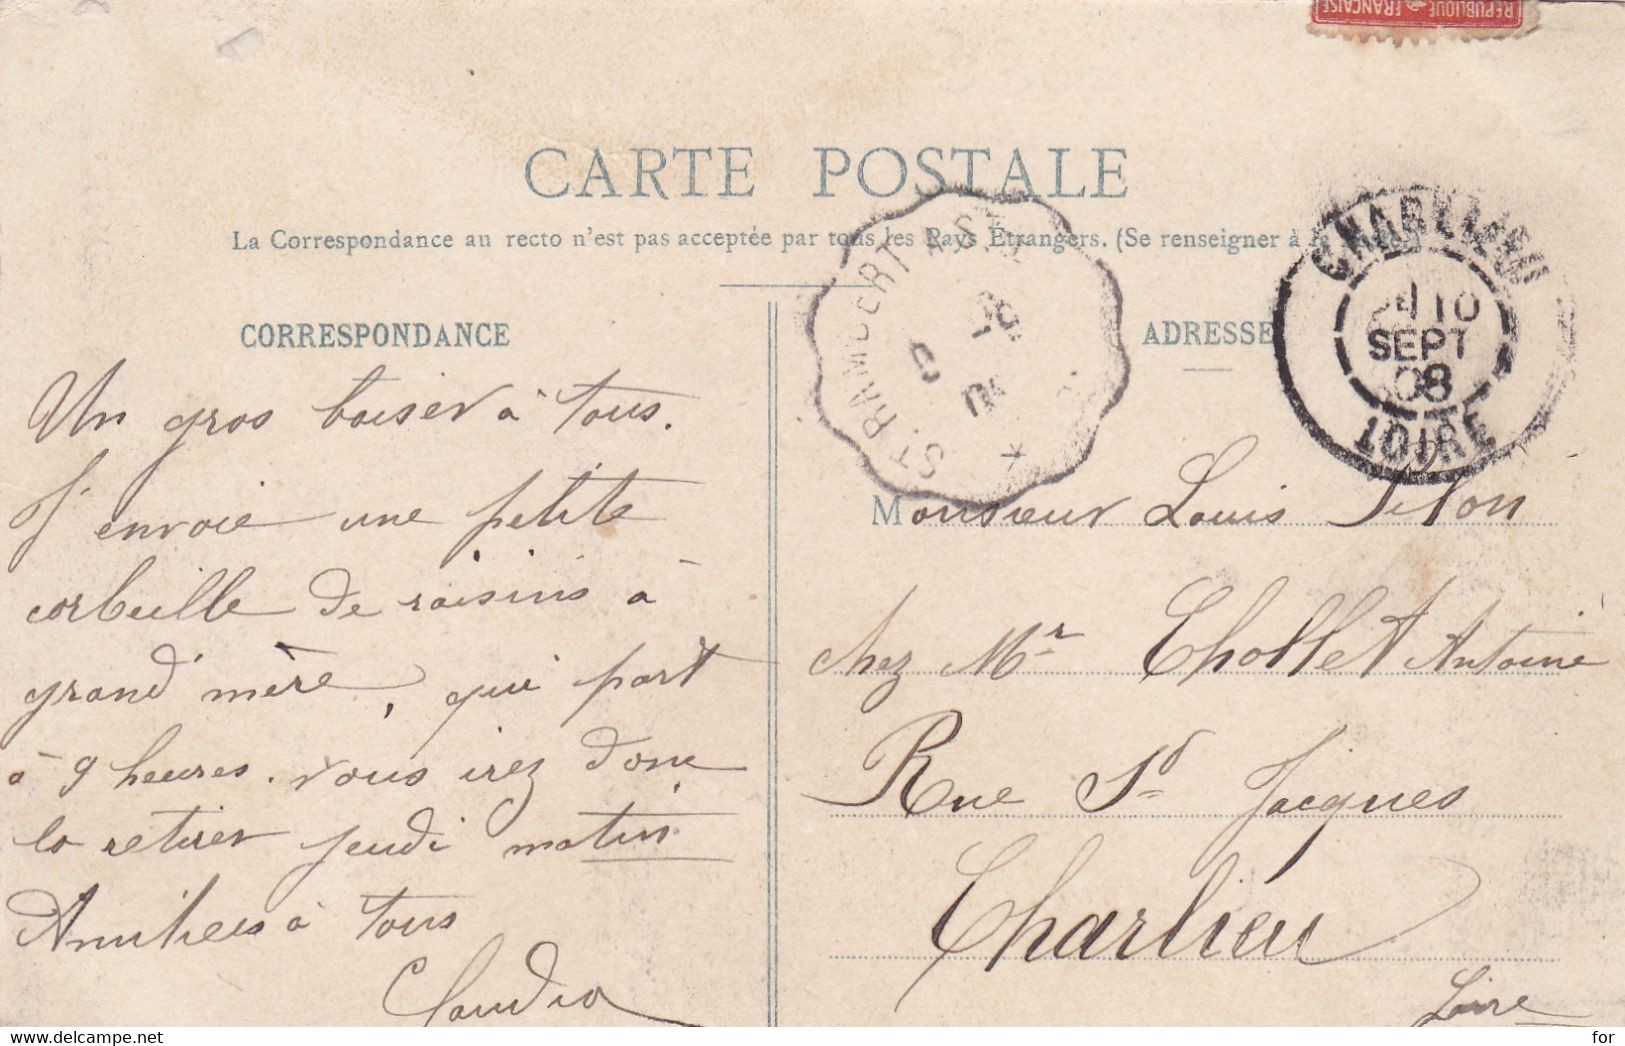 RÉPUBLIQUE FRANÇAISE
CARTE POSTALE
La Correspondance au recto n'est pas acceptée par tous les Pays Étrangers. (Se renseigner à la
CHARLIEU
10
SEPT
08
LOIRE
ST RAMBERT
CORRESPONDANCE
ADRESSE
Un gros baiser à tous.
J'envoie une petite
corbeille de raisins à
grand mère, qui part
à 9 heures. vous irez donc
la retirer jeudi matin
Amitiées à tous
Claudia
Monsieur Louis
chez Mr Chollet Antoine
Rue St Jacques
Charlieu
Loire
www.delcampe.net
for